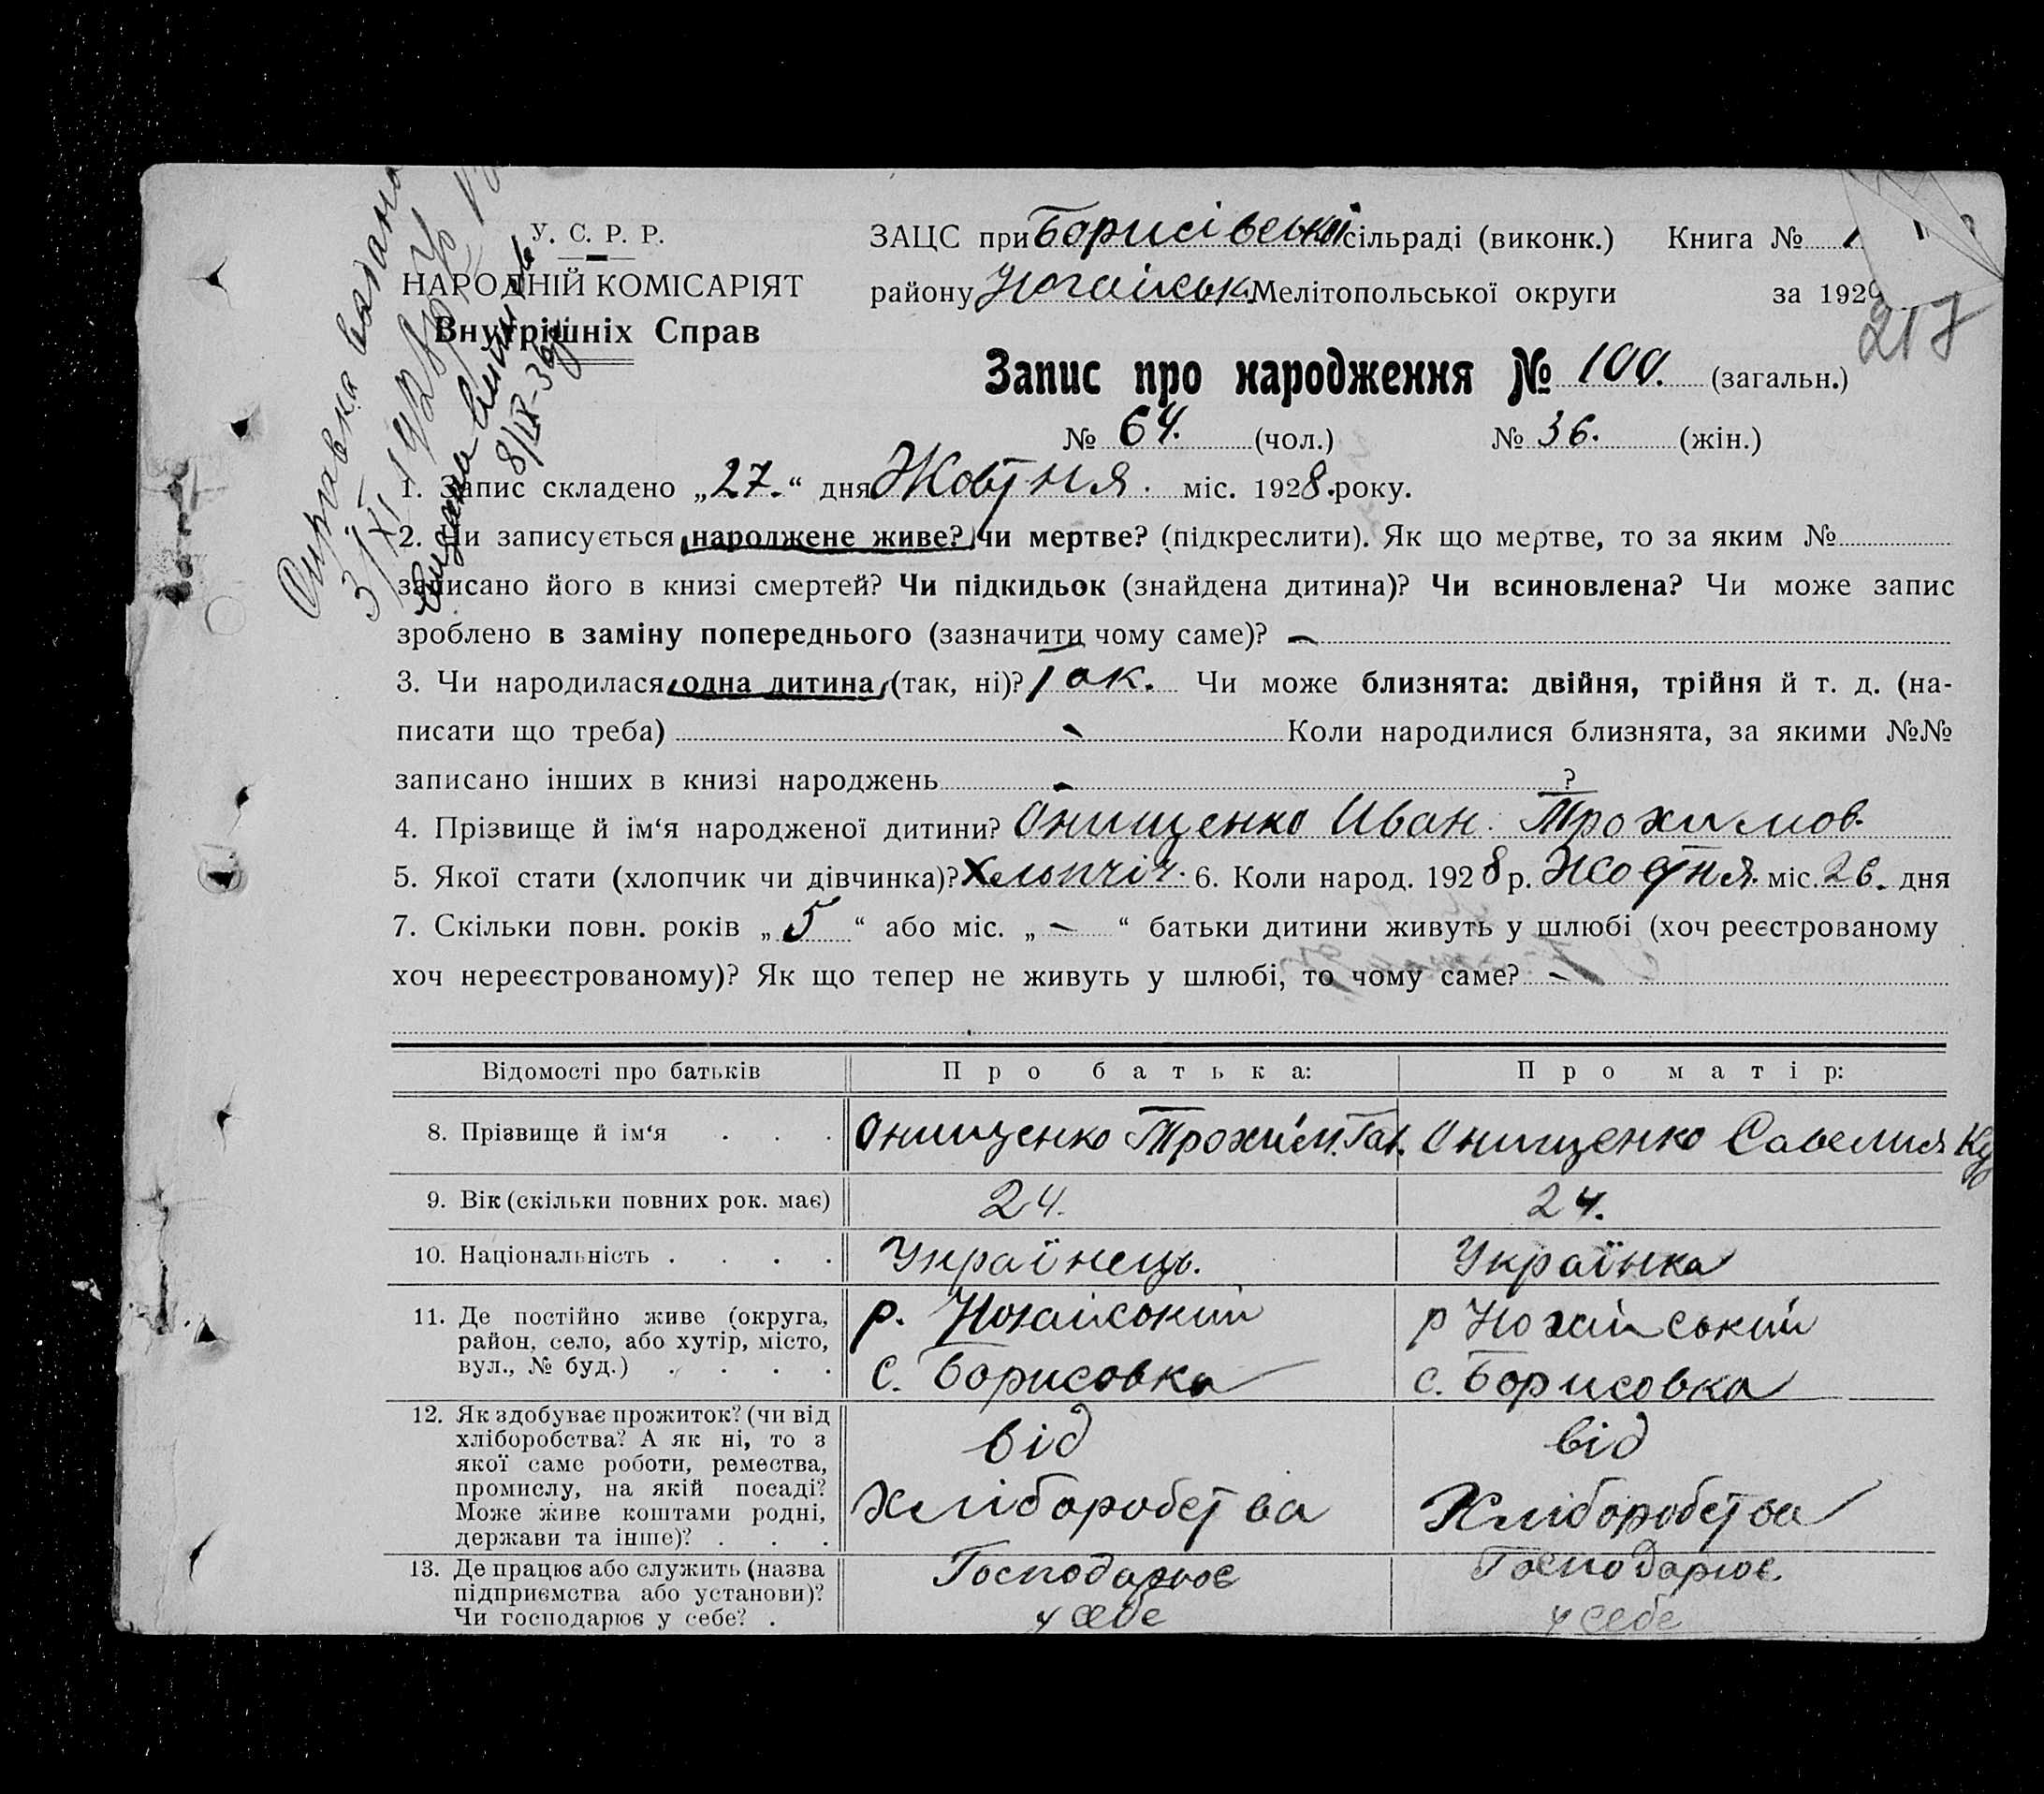 Справка видана
3/XI 1928 р.
Видана виписка
8/IX-36р
У. С. Р. Р.
НАРОДНІЙ КОМІСАРІЯТ
Внутрішніх Справ
ЗАЦС при Борисівській сільраді (виконк.) Книга №
району Ногайськ. Мелітопольської округи за 192
217
Запис про народження № 100. (загальн.)
№ 64. (чол.) № 36. (жін.)
1. Запис складено „27.“ дня Жовтня. міс. 1928. року.
2. Чи записується народжене живе? чи мертве? (підкреслити). Як що мертве, то за яким №
записано його в книзі смертей? Чи підкидьок (знайдена дитина)? Чи всиновлена? Чи може запис
зроблено в заміну попереднього (зазначити чому саме)? –
3. Чи народилася одна дитина (так, ні)? Так. Чи може близнята: двійня, трійня й т. д. (на-
писати що треба) – Коли народилися близнята, за якими №№
записано інших в книзі народжень – ?
4. Прізвище й ім‘я народженої дитини? Онищенко Иван Трохимов.
5. Якої стати (хлопчик чи дівчинка)? Хлопчік. 6. Коли народ. 1928 р. Жовтня. міс. 26. дня
7. Скільки повн. років „5“ або міс. „–“ батьки дитини живуть у шлюбі (хоч реєстрованому
хоч нереєстрованому)? Як що тепер не живуть у шлюбі, то чому саме? –
Відомості про батьків Про батька: Про матір:
8. Прізвище й ім‘я . . . Онищенко Трохим. Гав. Онищенко Савелия
9. Вік (скільки повних рок. має) 24. 24.
10. Національність . . . . Українець. Українка
11. Де постійно живе (округа, район, село, або хутір, місто, вул., № буд.) . . . .
р. Ногайський
с. Борисовка
р Ногайський
с. Борисовка
12. Як здобуває прожиток? (чи від хліборобства? А як ні, то з якої саме роботи, ремества, промислу, на якій посаді? Може живе коштами родні, держави та інше)? . . .
від
Хліборобства
від
Хліборобства
13. Де працює або служить (назва підприємства або установи)? Чи господарює у себе? .
Господарює
у себе
Господарює.
у себе